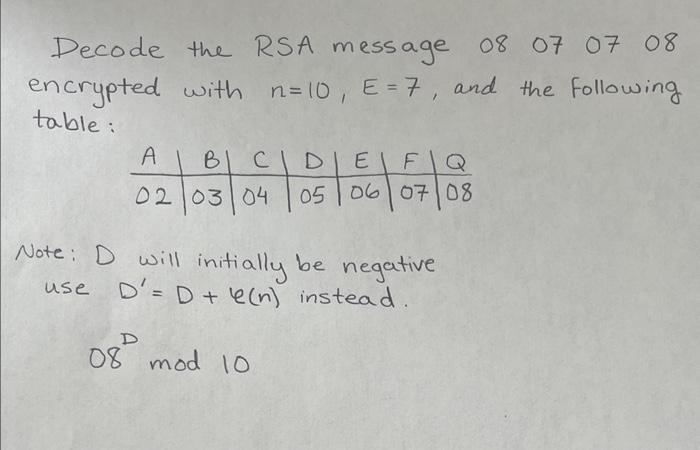 Decode the RSA message 08 07 07 08
encrypted with n=10, E=7, and the following
table:
A B C D E F Q
02 03 04 05 06 07 08
Note: D will initially be negative
use D' = D + φ(n) instead.
08^D mod 10